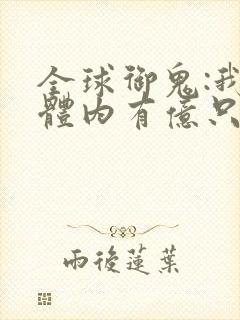 全球御鬼:我
體內有億只
雨後蓮葉